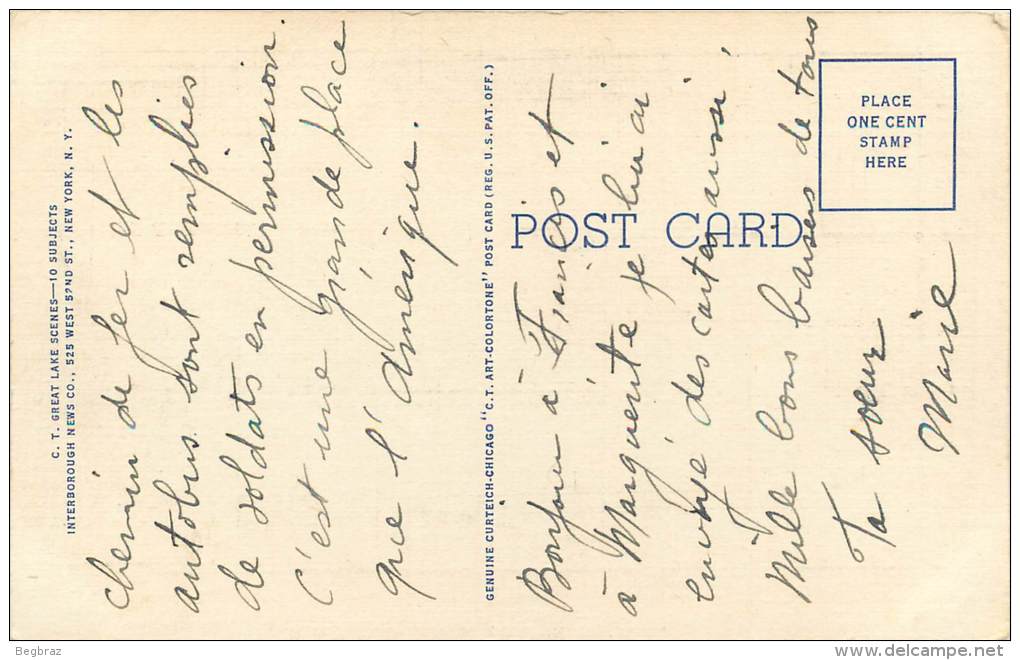 C. T. GREAT LAKE SCENES—10 SUBJECTS
INTERBOROUGH NEWS CO., 525 WEST 52ND ST., NEW YORK, N. Y.
chemin de fer et les
autobus sont remplies
de soldats en permission.
C'est une grande place
que l'Amérique.
GENUINE CURTEICH-CHICAGO "C. T. ART-COLORTONE" POST CARD (REG. U. S. PAT. OFF.)
POST CARD
PLACE
ONE CENT
STAMP
HERE
Bonjour à Francis et
à Marguerite je lui ai
envoyé des cartes aussi
Mille bons baisers de tous
Ta soeur
Marie
Begbraz
delcampe.net